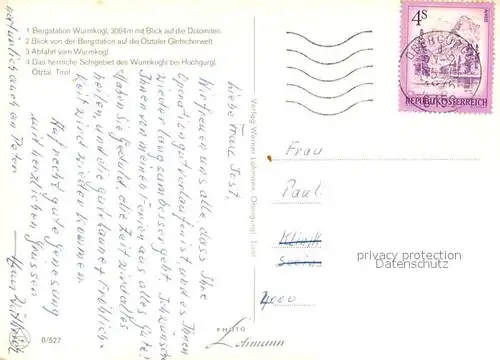 1 Bergstation Wurmkogl, 3064 m mit Blick auf die Dolomiten
2 Blick von der Bergstation auf die Ötztaler Gletscherwelt
3 Abfahrt vom Wurmkogl
4 Das herrliche Schigebiet des Wurmkogls bei Hochgurgl,
Ötztal, Tirol
Liebe Frau Jost,
Wir freuen uns alle dass Ihre
Operation gut verlaufen ist, und es Ihnen
wieder langsam besser geht. Ich wünsche
Ihnen von meinen Ferien aus alles Gute!
Haben Sie Geduld, die Zeit wird alles
heilen, und die gute Laune + Fröhlich-
keit wird wieder kommen.
Auf recht gute Genesung
mit herzlichen Grüssen
natürlich auch an Peter
Hans
0/527
Verlag Werner Lohmann, Obergurgl, Tirol
PHOTO
Lohmann
4S
REPUBLIK ÖSTERREICH
OBERGURGL
Frau
Paul
Klinik
4000
privacy protection
Datenschutz